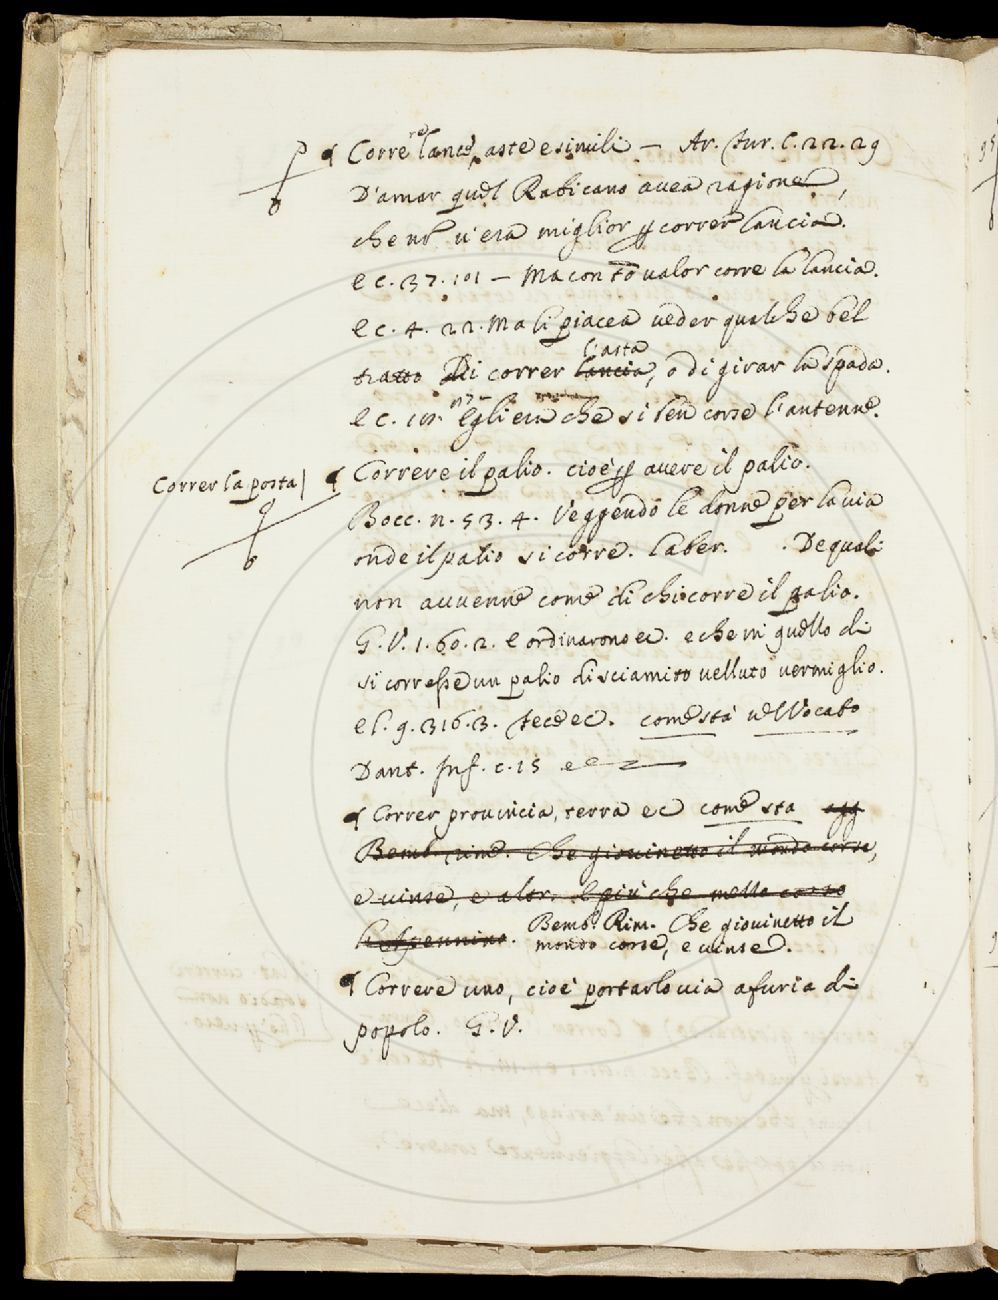 ¶ Corre re lance, aste e simili — Ar. fur. C. 22. 29
D'amar quel Rabicano avea ragione,
che nō v'era miglior ꝑ correr lancia.
e c. 37. 101 — Ma con tō valor corre la lancia.
e c. 4. 22. Ma li piacea veder qualche bel
l'asta
tratto Di correr lancia, o di girar la spada.
e c. Egli era che si ben corse l'antenne.
Correr la posta
¶ Correre il palio. cioè ꝑ avere il palio.
Bocc. n. 53. 4. Veggendo le donne per la via
onde il palio si corre. Laber. . De quali
non avvenne come di chi corre il palio.
G. V. 1. 60. 2. e ordinarono ec. e che in quello dì
si corresse un palio di sciamito velluto vermiglio.
e l. 9. 316. 3. fece ec. come sta nel Vocabo
Dant. Inf. c. 15
¶ Correr provincia, terra ec come sta agg
Bemb. rime. Che giovinetto il mondo corse,
e vinse, e alor. e più che nello corso
Bemb. Rim. Che giovinetto il
mondo corse, e vinse.
¶ Correre uno, cioè portarlo via a furia di
popolo. G. V.